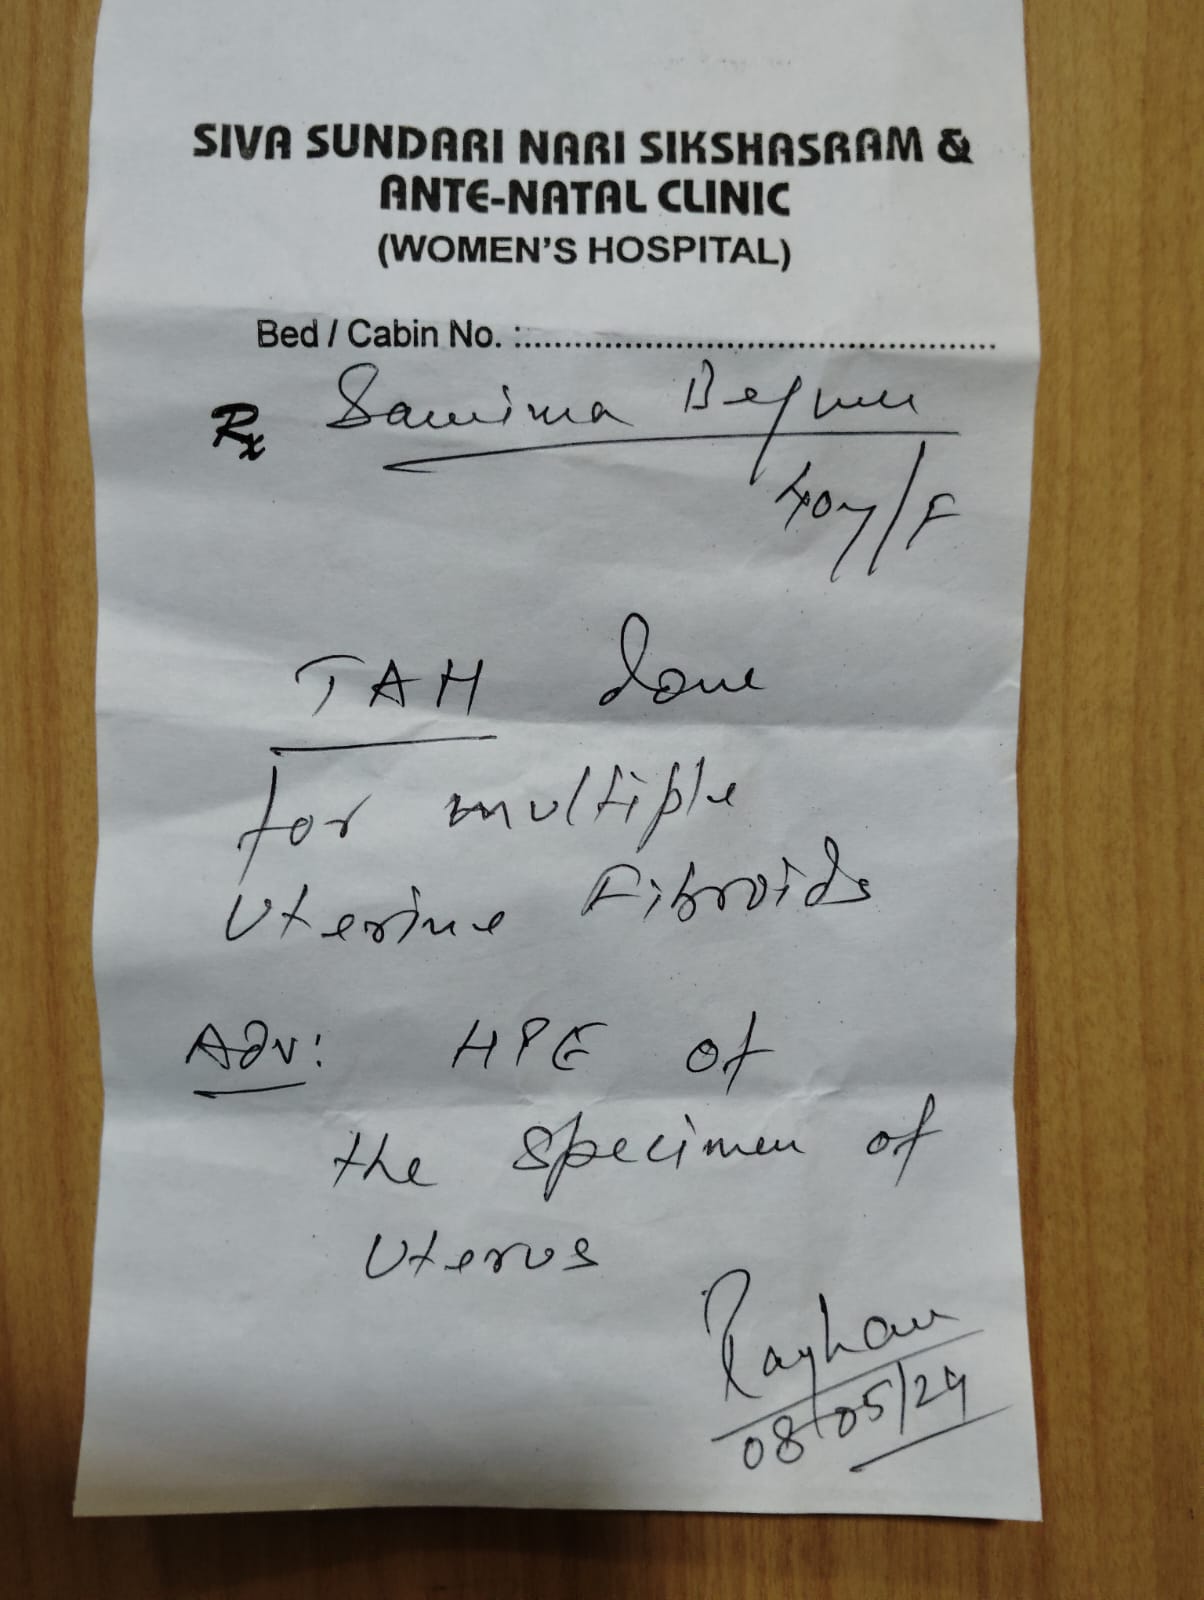 SIVA SUNDARI NARI SIKSHASRAM &
ANTE-NATAL CLINIC
(WOMEN'S HOSPITAL)
Bed / Cabin No. :...............................................................
Rx Samima Begum
40y/F
TAH done
for multiple
Uterine Fibroids
Adv: HPE of
the specimen of
Uterus
08/05/24